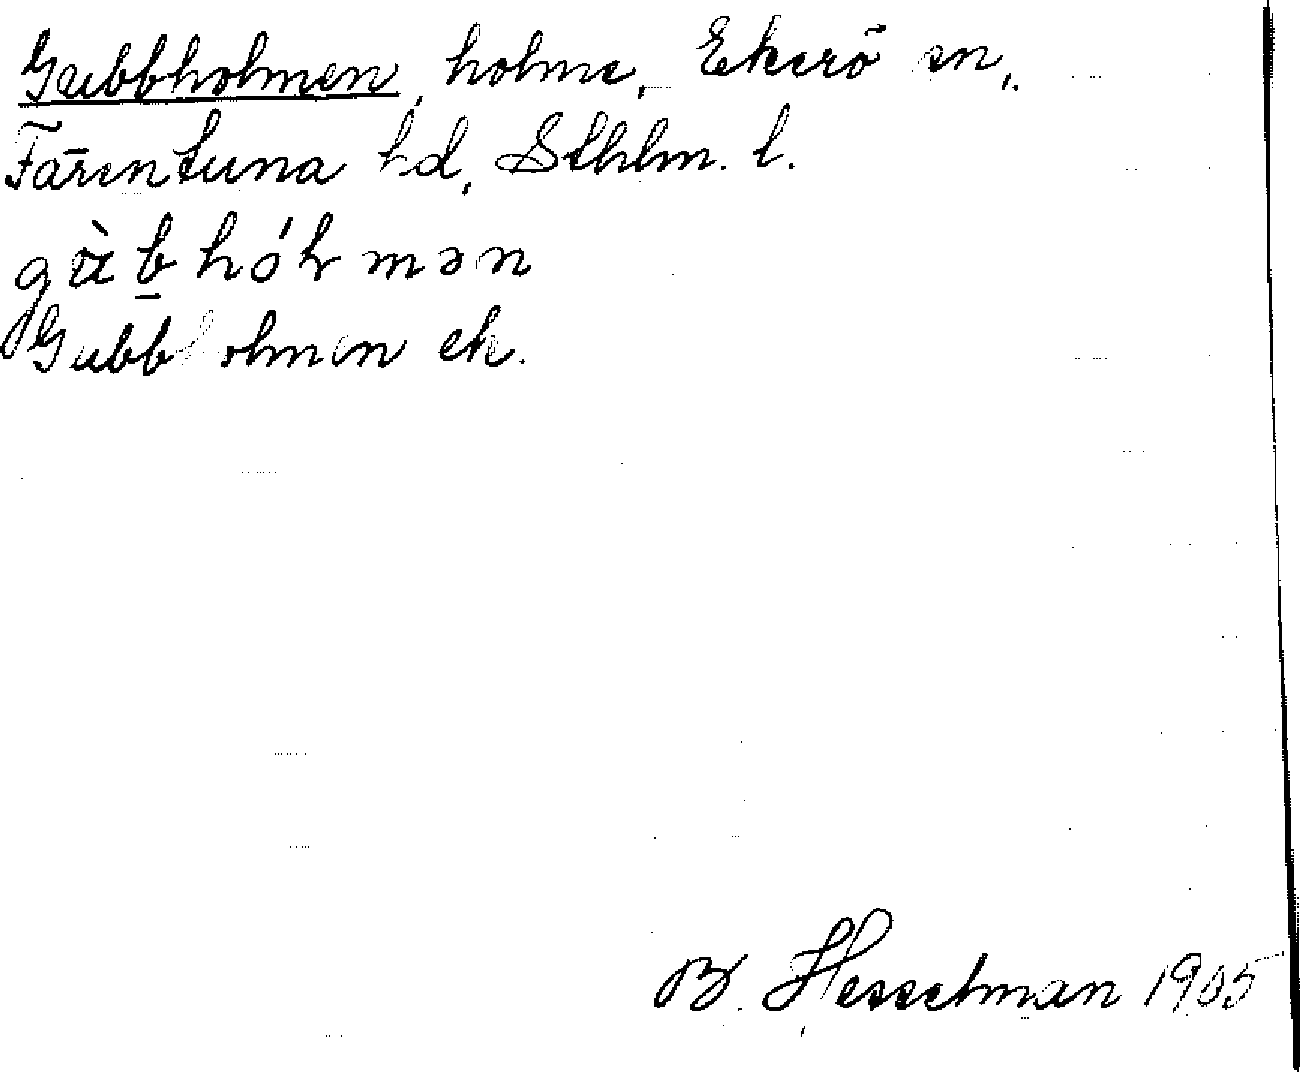 Gubbholmen, holme, Ekerö sn,
Färentuna hd, Sthlm. l.
Gubbholmen ek.
B. Hesselman 1905